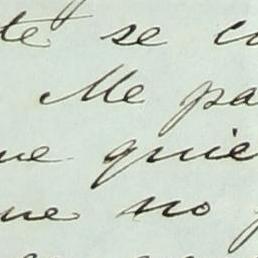 te se co
Me pa
ue quie
ue no